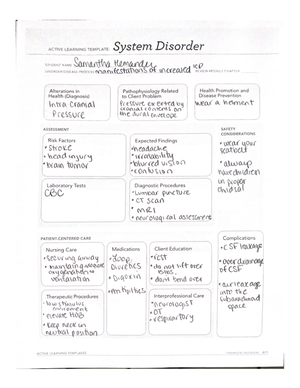 ACTIVE LEARNING TEMPLATE: System Disorder
STUDENT NAME Samantha Hernandez
manifestations of increased ICP
Alterations in
Health (Diagnosis)
Intra cranial
Pressure
Pathophysiology Related
to Client Problem
Pressure exerted by
cranial contents on
the dural envelope
Health Promotion and
Disease Prevention
wear a helment
ASSESSMENT
SAFETY
CONSIDERATIONS
Risk Factors
• stroke
• head injury
• brain tumor
Expected Findings
• headache
• irritability
• blurred vision
• confusion
• wear your
seatbelt
• always
have children
in proper
child
Laboratory Tests
CBC
Diagnostic Procedures
• lumbar puncture
• CT scan
• MRI
• neurological assessment
PATIENT-CENTERED CARE
Complications
Nursing Care
• securing airway
• maintaining
oxygenation &
ventilation
Medications
• loop
diuretics
Client Education
• rest
• do not lift over
• don't bend over
• CSF leakage
• overdrainage
of CSF
• air leakage
into the
subarachnoid
space
Therapeutic Procedures
environment
• elevate HOB
• keep neck in
Interprofessional Care
• neurologist
• OT
• respiratory
ACTIVE LEARNING TEMPLATES